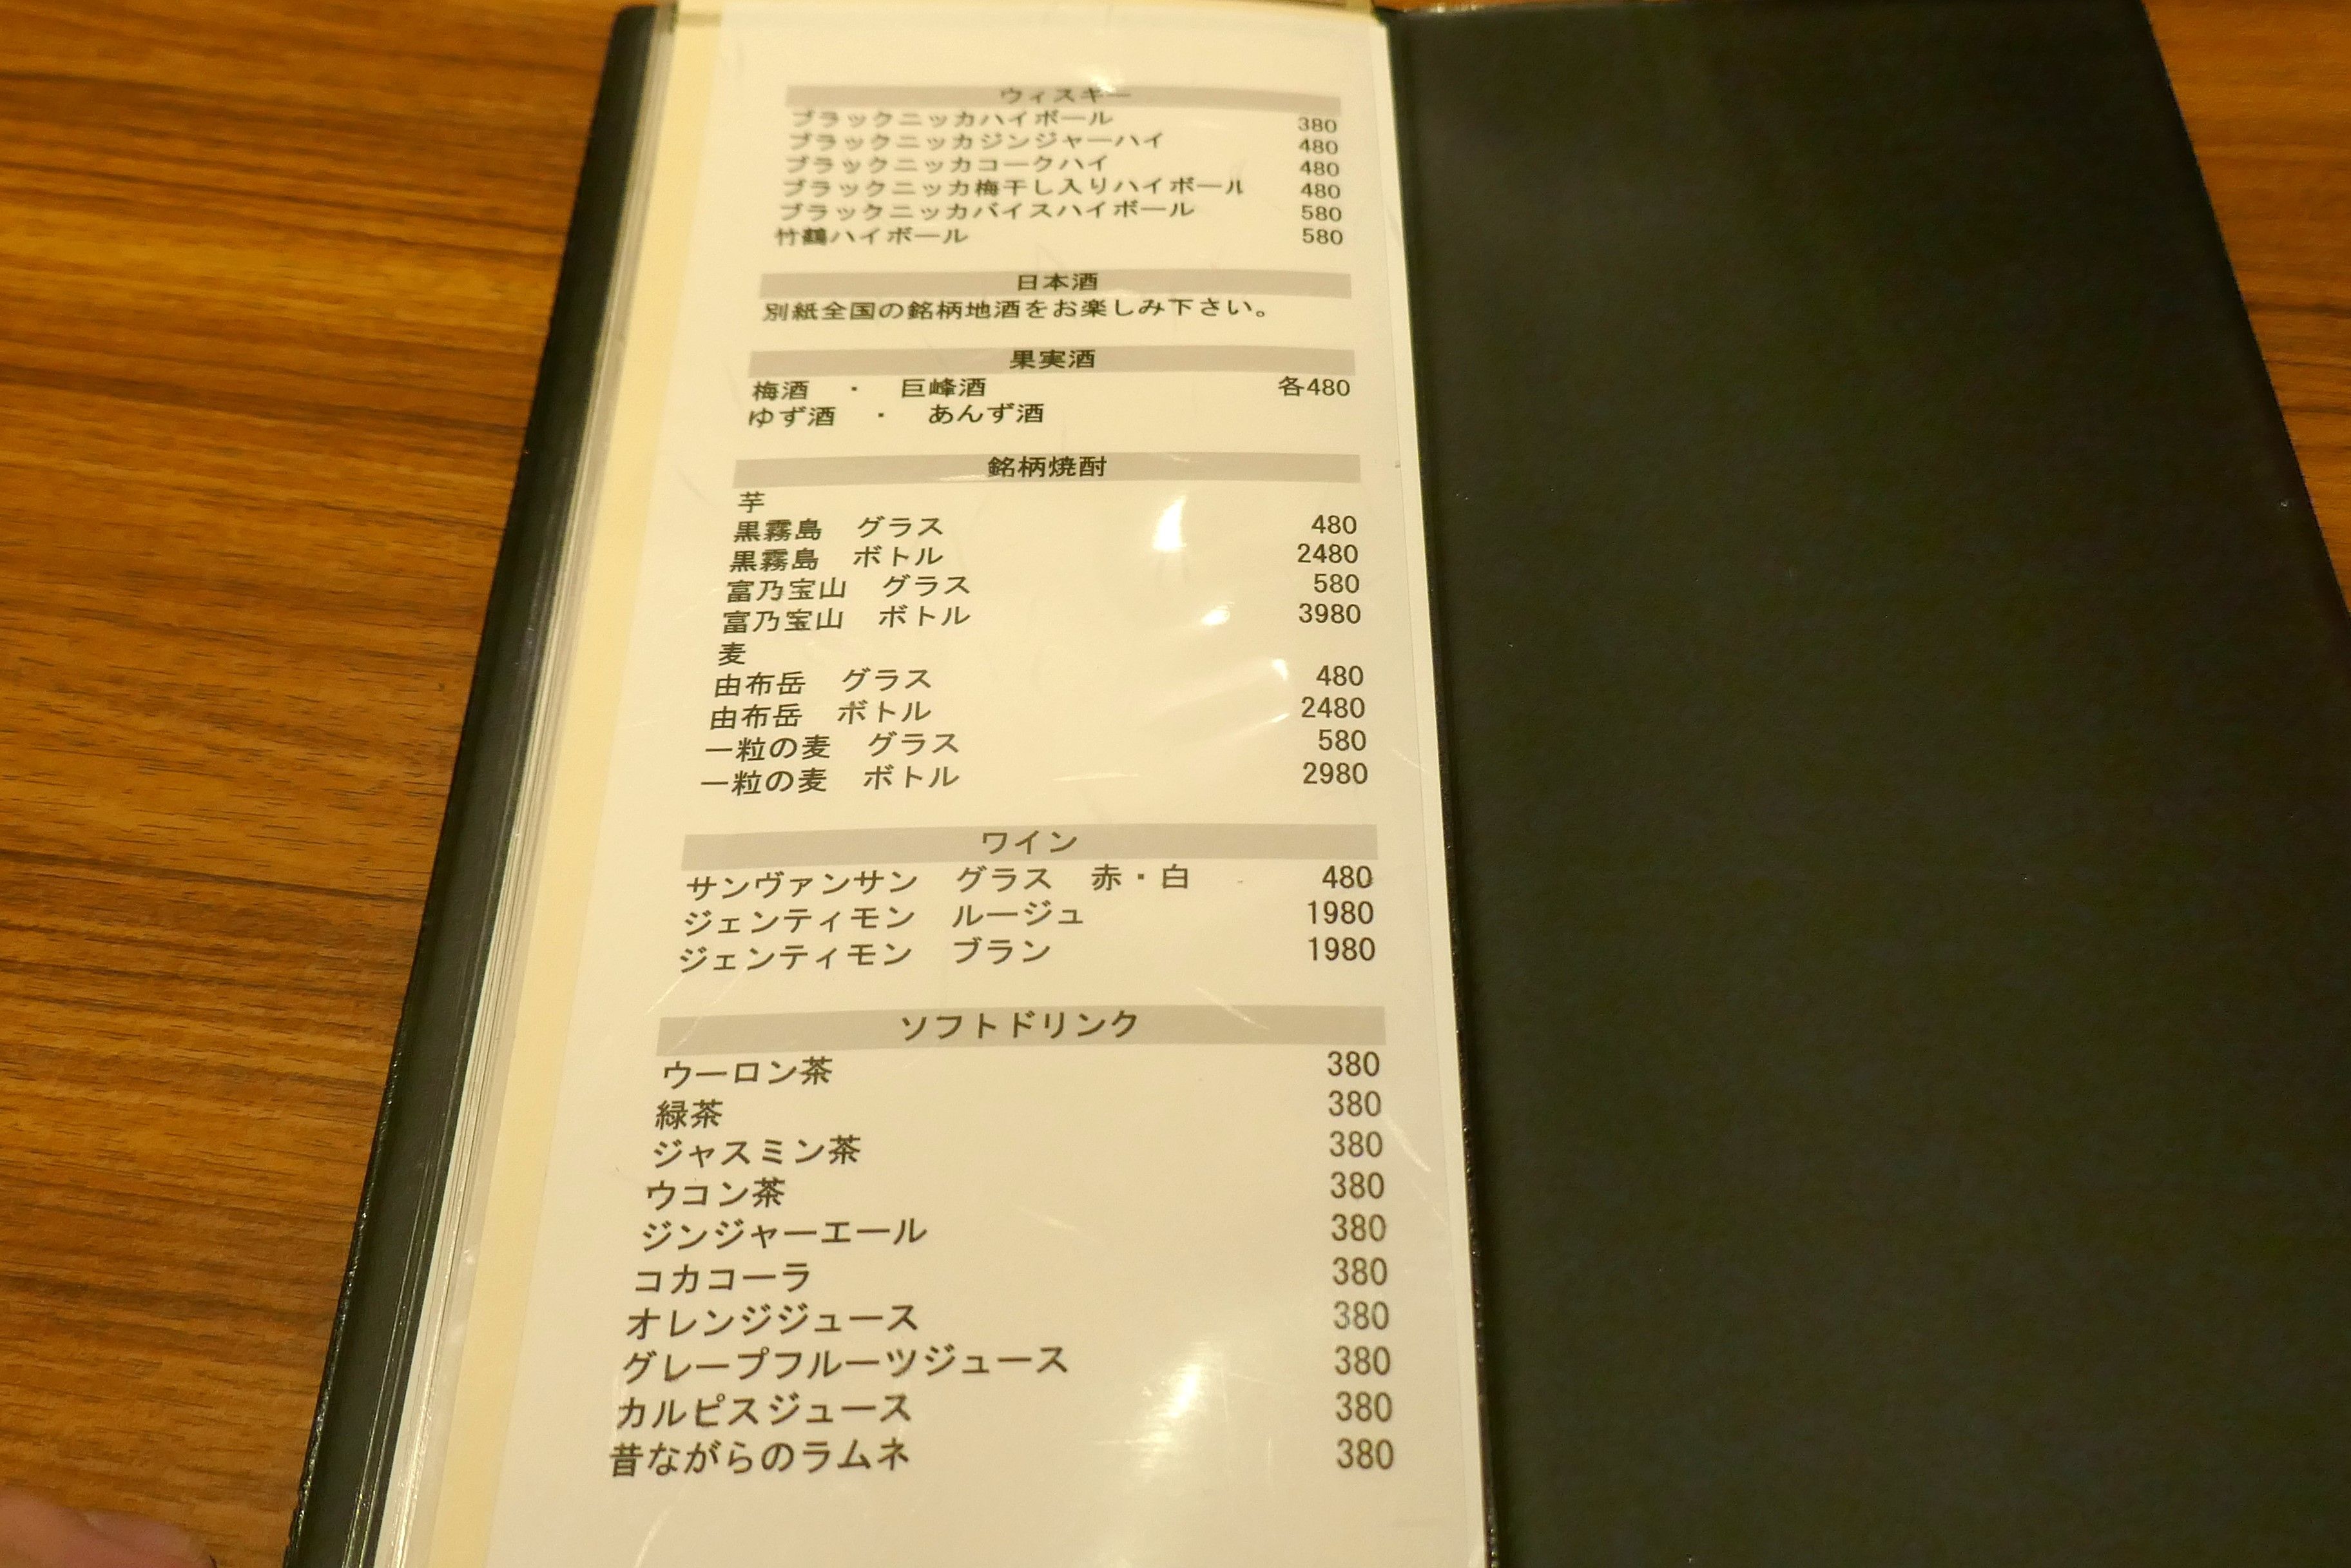 ウィスキー
ブラックニッカハイボール 380
ブラックニッカジンジャーハイ 480
ブラックニッカコークハイ 480
ブラックニッカ梅干し入りハイボール 480
ブラックニッカバイスハイボール 580
竹鶴ハイボール 580
日本酒
別紙全国の銘柄地酒をお楽しみ下さい。
果実酒
梅酒 ・ 巨峰酒 各480
ゆず酒 ・ あんず酒
銘柄焼酎
芋
黒霧島 グラス 480
黒霧島 ボトル 2480
富乃宝山 グラス 580
富乃宝山 ボトル 3980
麦
由布岳 グラス 480
由布岳 ボトル 2480
一粒の麦 グラス 580
一粒の麦 ボトル 2980
ワイン
サンヴァンサン グラス 赤・白 480
ジェンティモン ルージュ 1980
ジェンティモン ブラン 1980
ソフトドリンク
ウーロン茶 380
緑茶 380
ジャスミン茶 380
ウコン茶 380
ジンジャーエール 380
コカコーラ 380
オレンジジュース 380
グレープフルーツジュース 380
カルピスジュース 380
昔ながらのラムネ 380